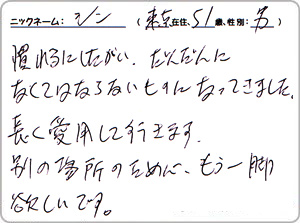 ニックネーム：シン （東京在住、51歳、性別：男）
慣れるにしたがい、だんだんに
なくてはならないものになってきました。
長く愛用して行きます。
別の場所のために、もう一脚
欲しいです。